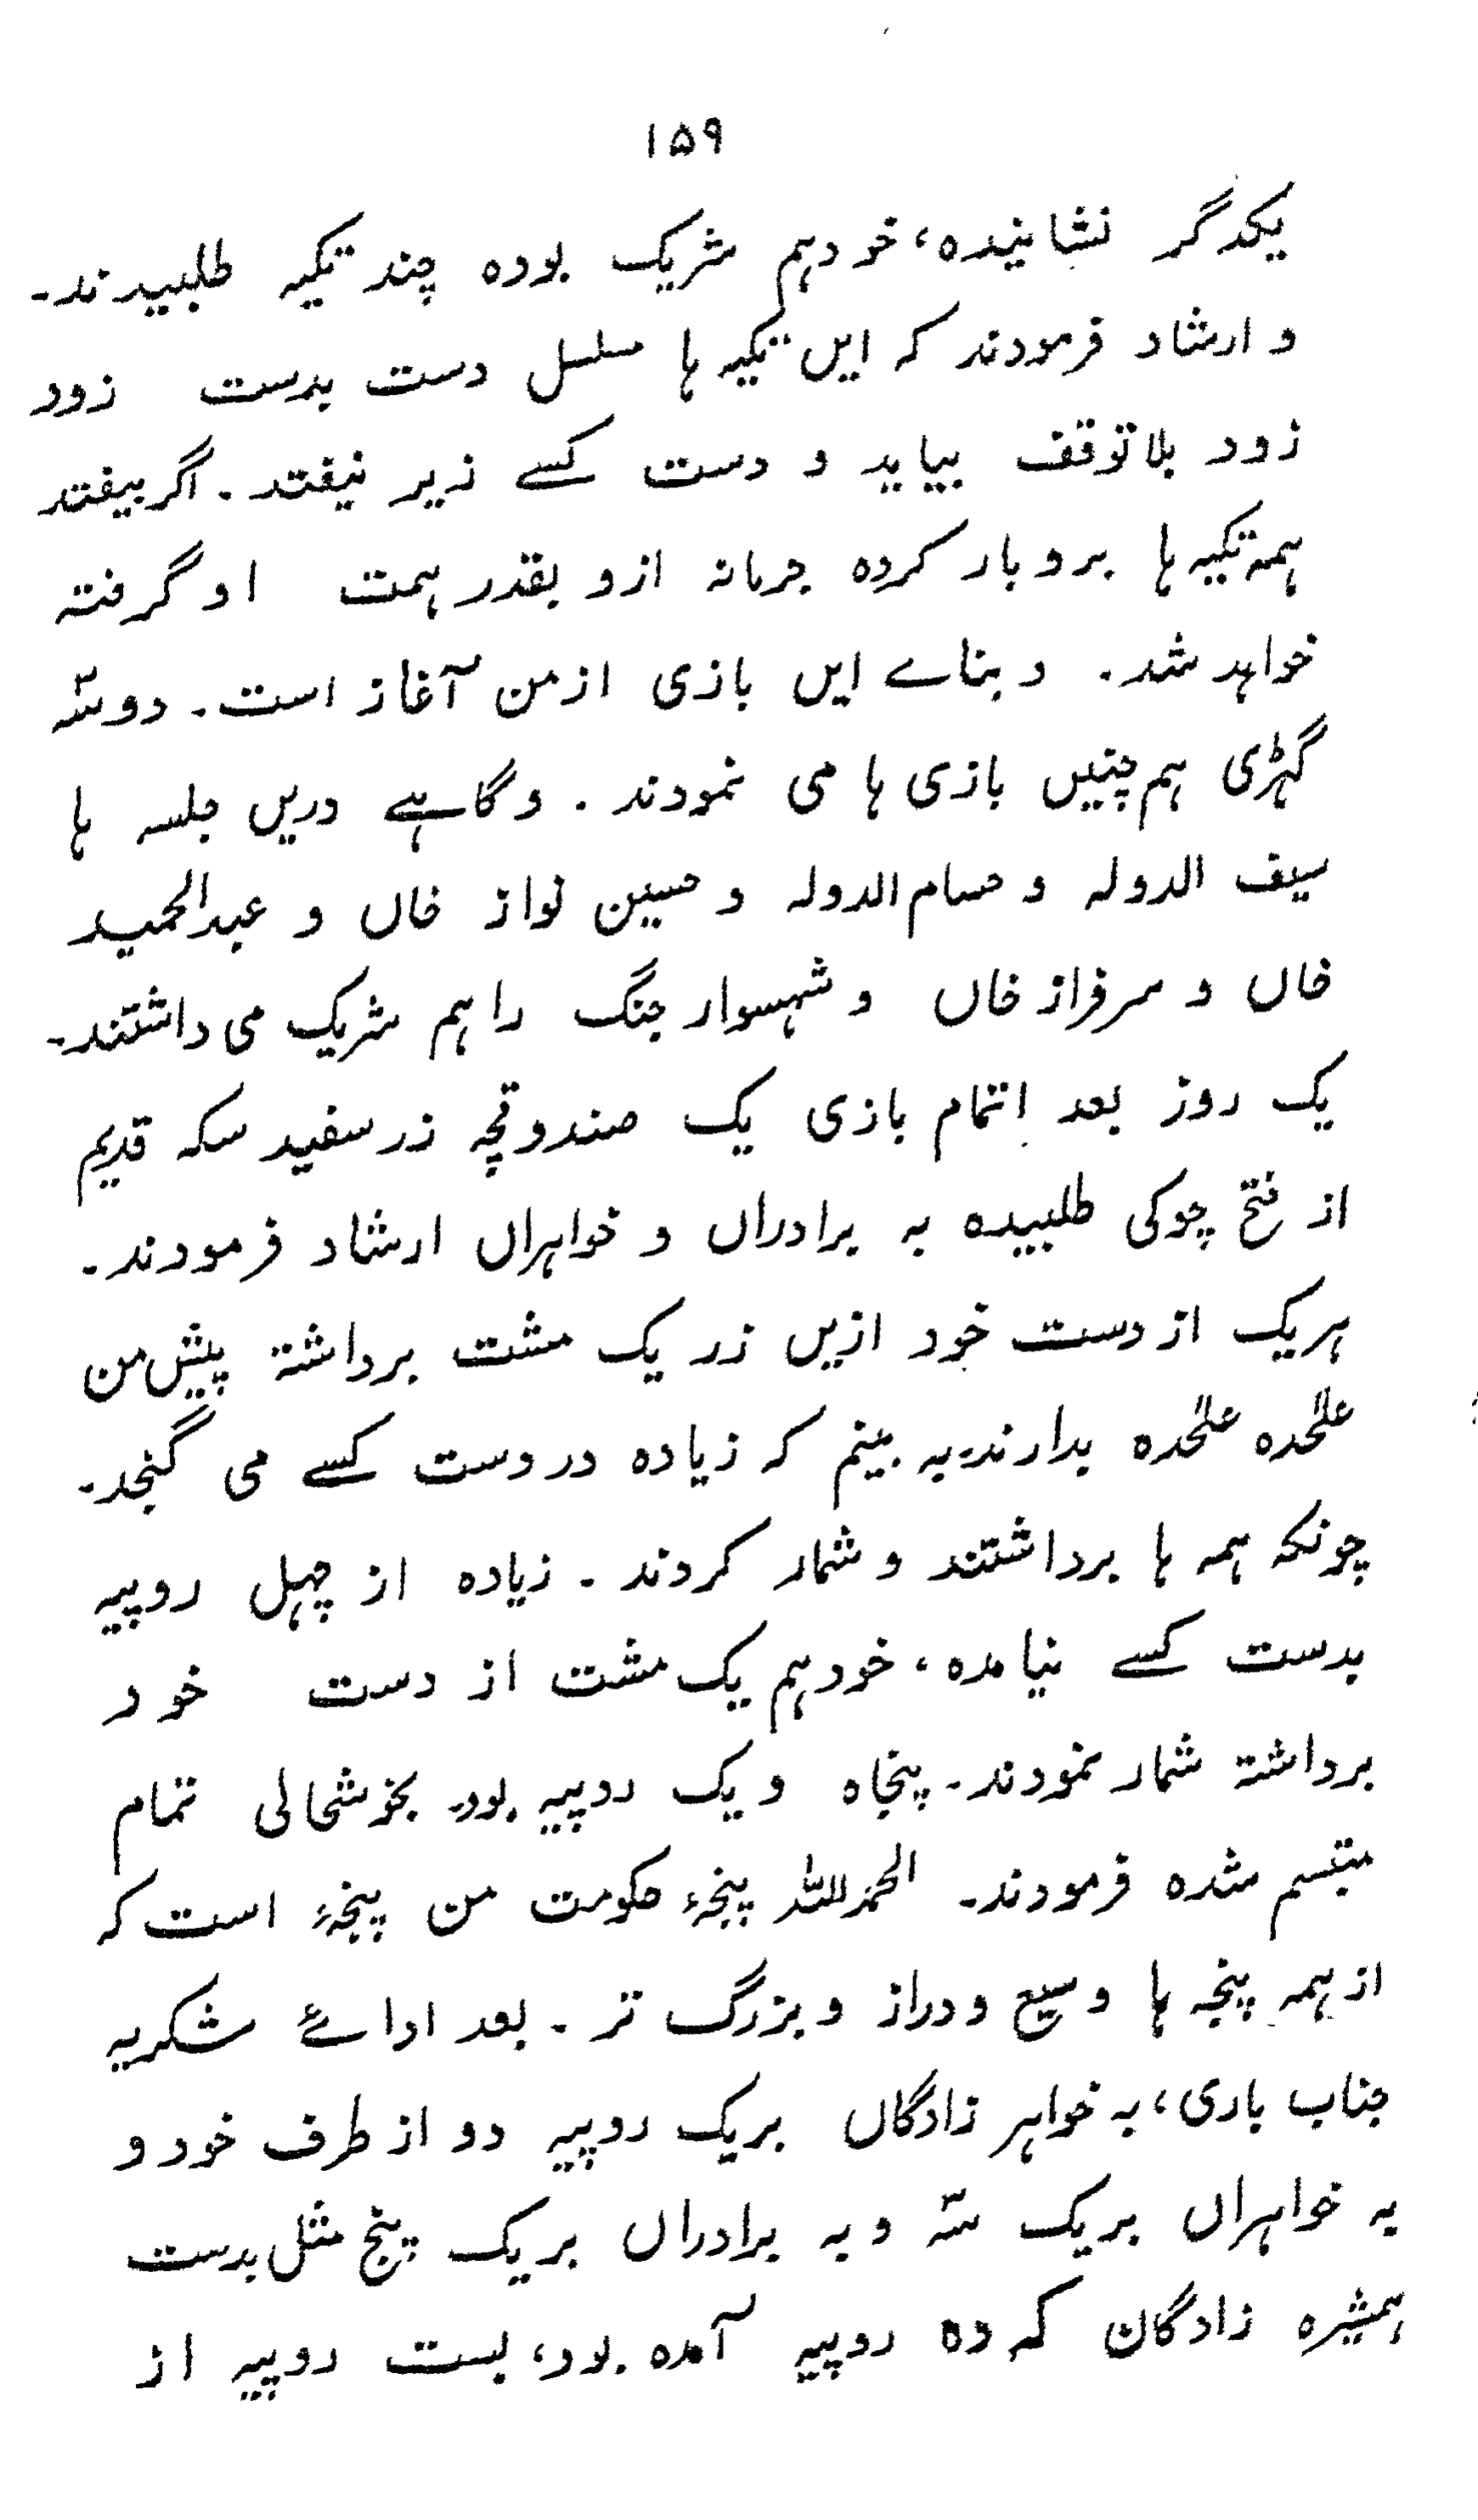 ۱۵۹
یکدگر نشانیده، خود ہم شریک بوده چند تکیہ طلبیدند۔
و ارشاد فرمودند کہ ایں تکیہ ہا مسلسل دست بدست زود
زود بلا توقف بیاید و دست کسے زیر نیفتد۔ اگر بیفتد
ہمہ تکیہ ہا برو بار کرده جرمانہ ازو بقدر ہمت او گرفتہ
خواہد شد۔ و بناے ایں بازی از من آغاز است۔ دو سہ
گہڑی ہم چنیں بازی ہا می نمودند۔ و گاہے دریں جلسہ ہا
سیف الدولہ و حسام الدولہ و حسین نواز خاں و عبدالحمید
خاں و سرفراز خاں و شہسوار جنگ را ہم شریک می داشتند۔
یک روز بعد اتمام بازی یک صندوقچہ زر سفید سکہ قدیم
از فتح چوکی طلبیده بہ برادراں و خواہراں ارشاد فرمودند۔
ہریک از دست خود ازیں زر یک مشت برداشتہ پیش من
علٰحده علٰحده بدارند۔ بہ بینم کہ زیاده در دست کسے می گنجد۔
چونکہ ہمہ ہا برداشتند و شمار کردند۔ زیاده از چہل روپیہ
بدست کسے نیامده، خود ہم یک مشت از دست خود
برداشتہ شمار نمودند۔ پنجاه و یک روپیہ بود۔ بخوشحالی تمام
متبسم شده فرمودند۔ الحمدللہ پنجۂ حکومت من پنجۂ است کہ
از ہمہ پنجہ ہا وسیع و دراز و بزرگ تر۔ بعد اداۓ شکریہ
جناب باری، بہ خواہر زادگاں ہریک روپیہ دو از طرف خود و
بہ خواہراں ہریک سہ و بہ برادراں ہریک پنج مثل بدست
ہمشیره زادگان کہ ده روپیہ آمده بود، بست روپیہ از